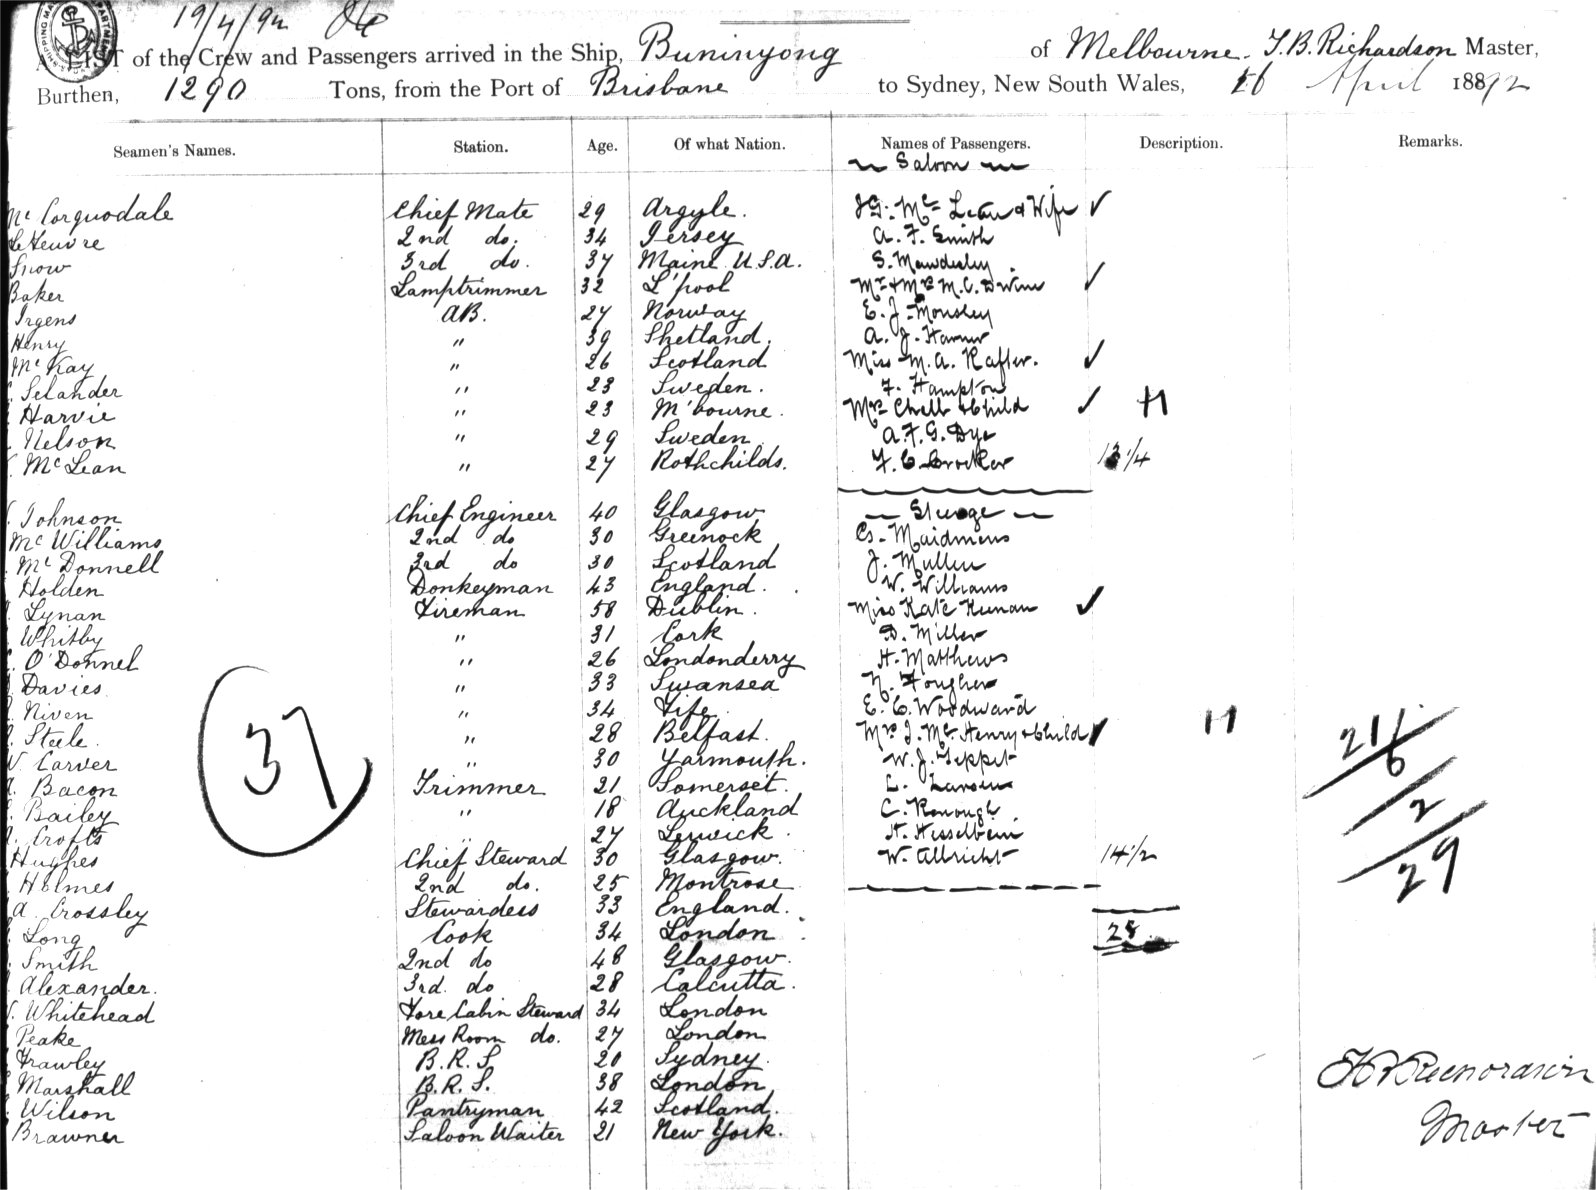 19/4/92
A LIST of the Crew and Passengers arrived in the Ship, Buninyong of Melbourne. T. B. Richardson Master,
Burthen, 1290 Tons, from the Port of Brisbane to Sydney, New South Wales, 16 April 1892
Seamen's Names. Station. Age. Of what Nation. Names of Passengers. Description. Remarks.
~ Saloon ~
Mc Corquodale Chief Mate 29 Argyle. J G. Mc Lean & Wife ✓
Le Feuvre 2nd do. 34 Jersey A. F. Smith
Snow 3rd do. 37 Maine U.S.A. S. Mawdesley
Baker Lamptrimmer 32 L'pool Mr & Mrs M. C. ✓
Irgens AB. 27 Norway E. J. Mousley
Henry " 39 Shetland. A. J.
McKay " 26 Scotland Miss M. A. Rafter. ✓
Selander " 23 Sweden. F. Hampton
Harvie " 23 M'bourne. Mrs & Child ✓ H
Nelson " 29 Sweden A. F. G. Dye
McLean " 27 Rothchilds. F. C. Crocker 13 1/4
Johnson Chief Engineer 40 Glasgow ~ Steerage ~
McWilliams 2nd do 30 Greenock Cs. Maidmens
McDonnell 3rd do 30 Scotland J. Mullen
Holden Donkeyman 43 England. W. Williams
Lynan Fireman 58 Dublin. Miss Kate Keenan ✓
Whitby " 31 Cork D. Miller
O'Donnel " 26 Londonderry H. Matthews
Davies " 33 Swansea N. Fougher
Niven " 34 Fife E. C. Woodward
Steele. " 28 Belfast. Mrs J. McHenry & Child ✓ H
Carver " 30 Yarmouth. W. J. Tippet
Bacon Trimmer 21 Somerset. L. Larsen
Bailey " 18 Auckland C. Konough
Crofts " 27 Lerwick. H. Hesselbein
Hughes Chief Steward 30 Glasgow. W. Albricht 14 1/2
Holmes 2nd do. 25 Montrose
A. Crossley Stewardess 33 England.
Long Cook 34 London 28
Smith 2nd do 48 Glasgow.
Alexander. 3rd. do 28 Calcutta.
Whitehead Fore Cabin Steward 34 London
Peake Mess Room do. 27 London
Frawley B. R. S 20 Sydney.
Marshall B. R. S. 38 London
Wilson Pantryman 42 Scotland.
Brawner Saloon Waiter 21 New York.
37
21/6
2
29
Richardson
Master